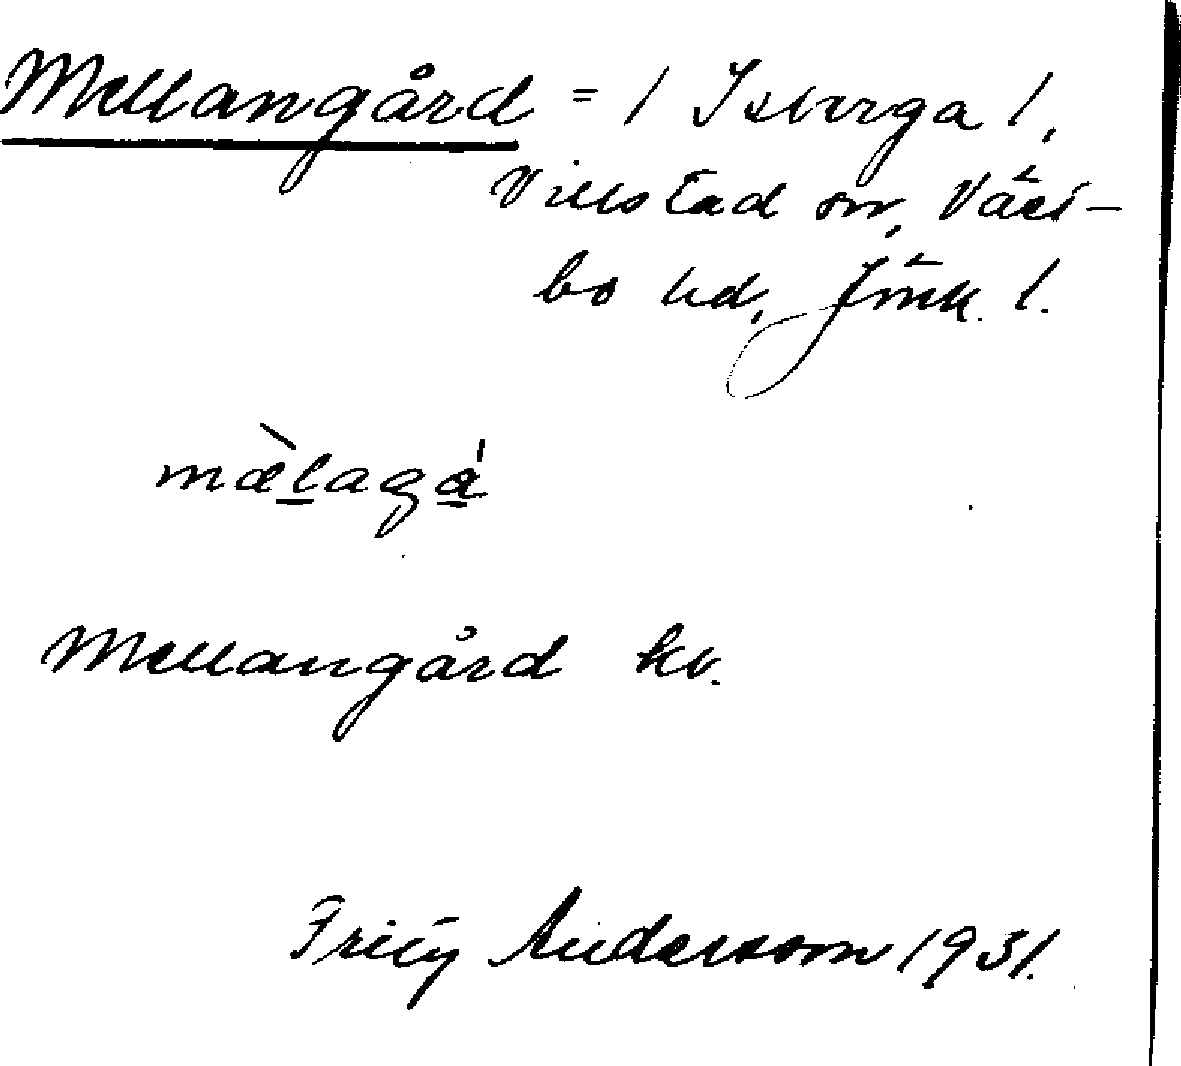 Mellangård = / Isberga /,
Villstad sn, Väst-
bo hd, Jönk. l.
mæ̀lagá
Mellangård kv.
Fritz Andersson 1931.